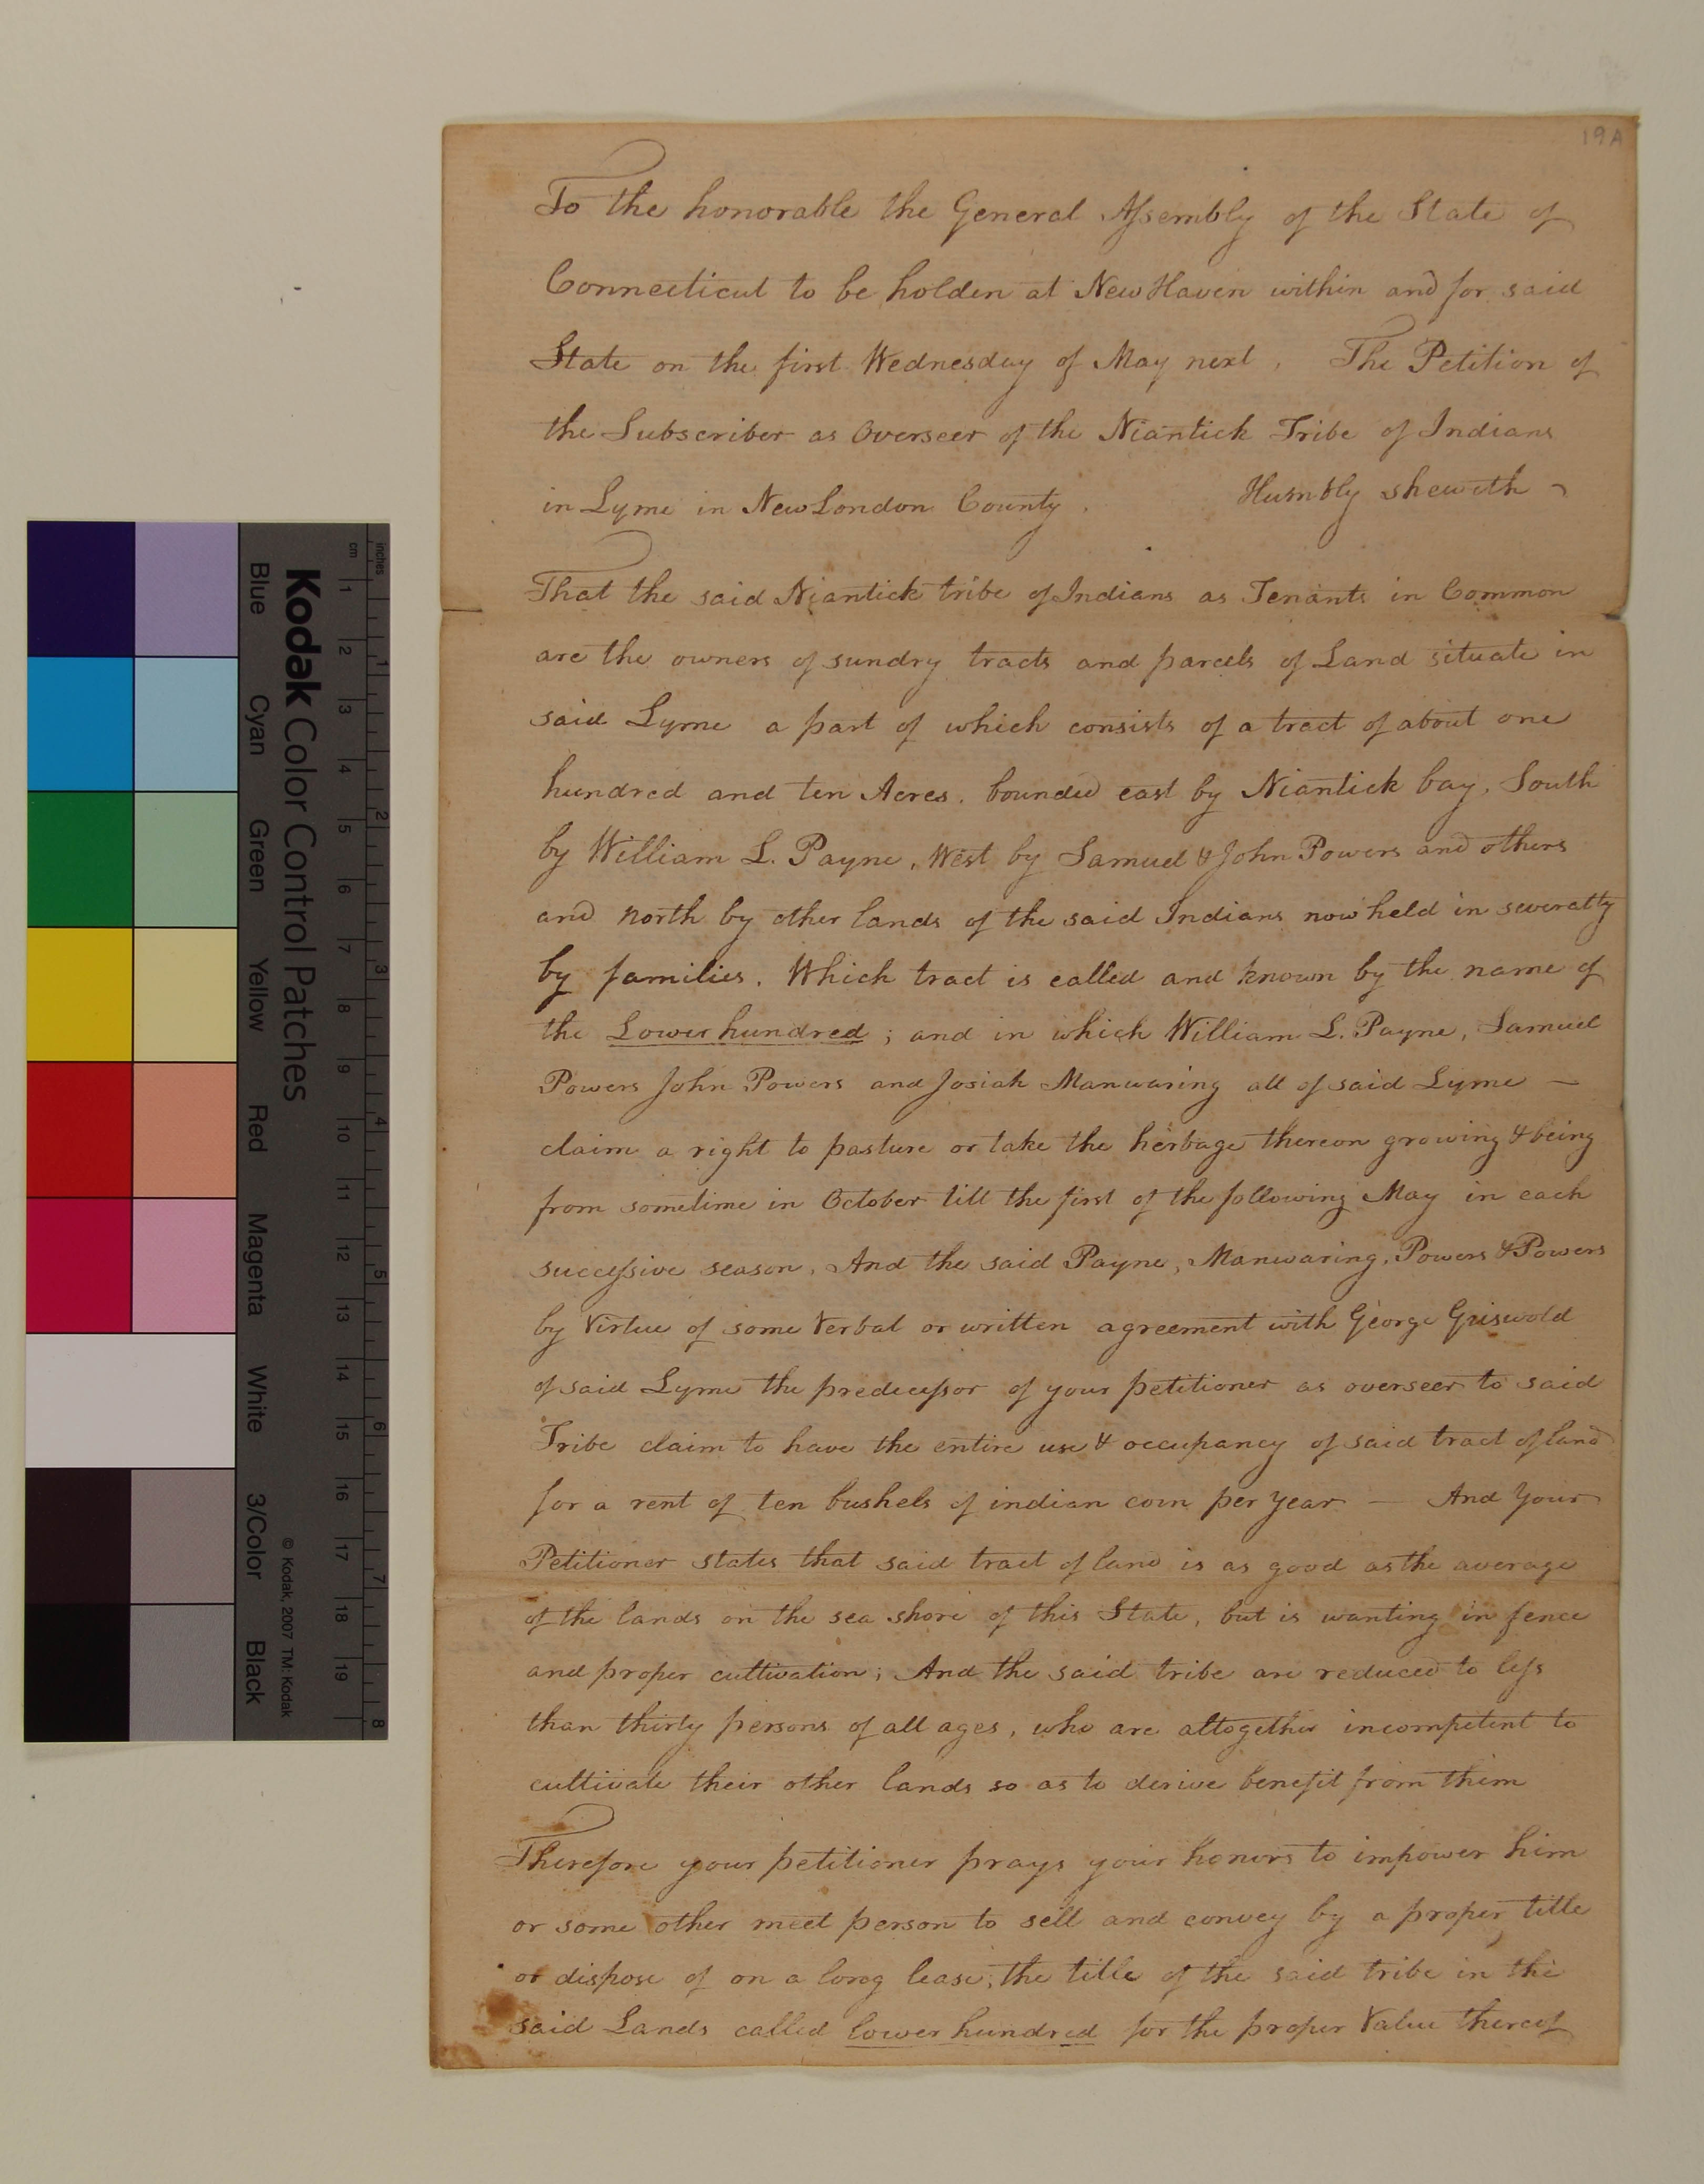 19A
To the honorable the General Assembly of the State of
Connecticut to be holden at New Haven within and for said
State on the first Wednesday of May next, The Petition of
the Subscriber as Overseer of the Niantick Tribe of Indians
in Lyme in New London County. Humbly sheweth
That the said Niantick tribe of Indians as Tenants in Common
are the owners of sundry tracts and parcels of Land situate in
said Lyme a part of which consists of a tract of about one
hundred and ten Acres. bounded east by Niantick bay, South
by William L. Payne, West by Samuel & John Powers and others
and north by other lands of the said Indians now held in severalty
by families. Which tract is called and known by the name of
the Lower hundred; and in which William L. Payne, Samuel
Powers John Powers and Josiah Manwaring all of said Lyme —
claim a right to pasture or take the herbage thereon growing & being
from sometime in October till the first of the following May in each
successive season. And the said Payne, Manwaring, Powers & Powers
by Virtue of some Verbal or written agreement with George Griswold
of said Lyme the predecessor of your petitioner as overseer to said
Tribe claim to have the entire use & occupancy of said tract of land
for a rent of ten bushels of indian corn per year — And Your
Petitioner states that said tract of land is as good as the average
of the lands on the sea shore of this State, but is wanting in fence
and proper cultivation; And the said tribe are reduced to less
than thirty persons of all ages, who are altogether incompetent to
cultivate their other lands so as to derive benefit from them
Therefore your petitioner prays your honors to impower him
or some other meet person to sell and convey by a proper title
or dispose of on a long lease, the title of the said tribe in the
said Lands called lower hundred for the proper Value thereof
Kodak Color Control Patches
Blue Cyan Green Yellow Red Magenta White 3/Color Black
© Kodak, 2007 TM: Kodak
cm 1 2 3 4 5 6 7 8 9 10 11 12 13 14 15 16 17 18 19
inches 1 2 3 4 5 6 7 8